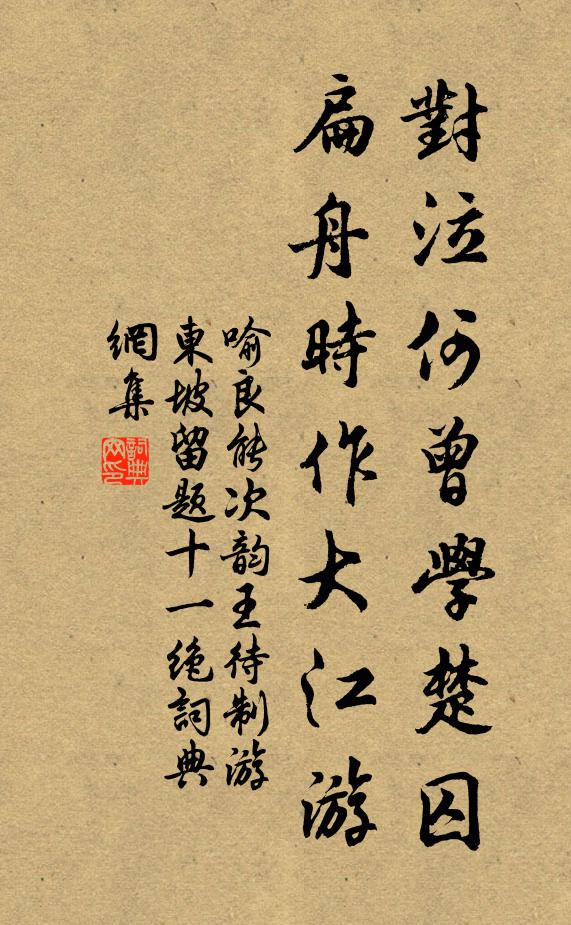 對泣何曾學楚囚
扁舟時作大江游
喻良能次韵王待制游
東坡留題十一絶詞典
網集
詞典
网印